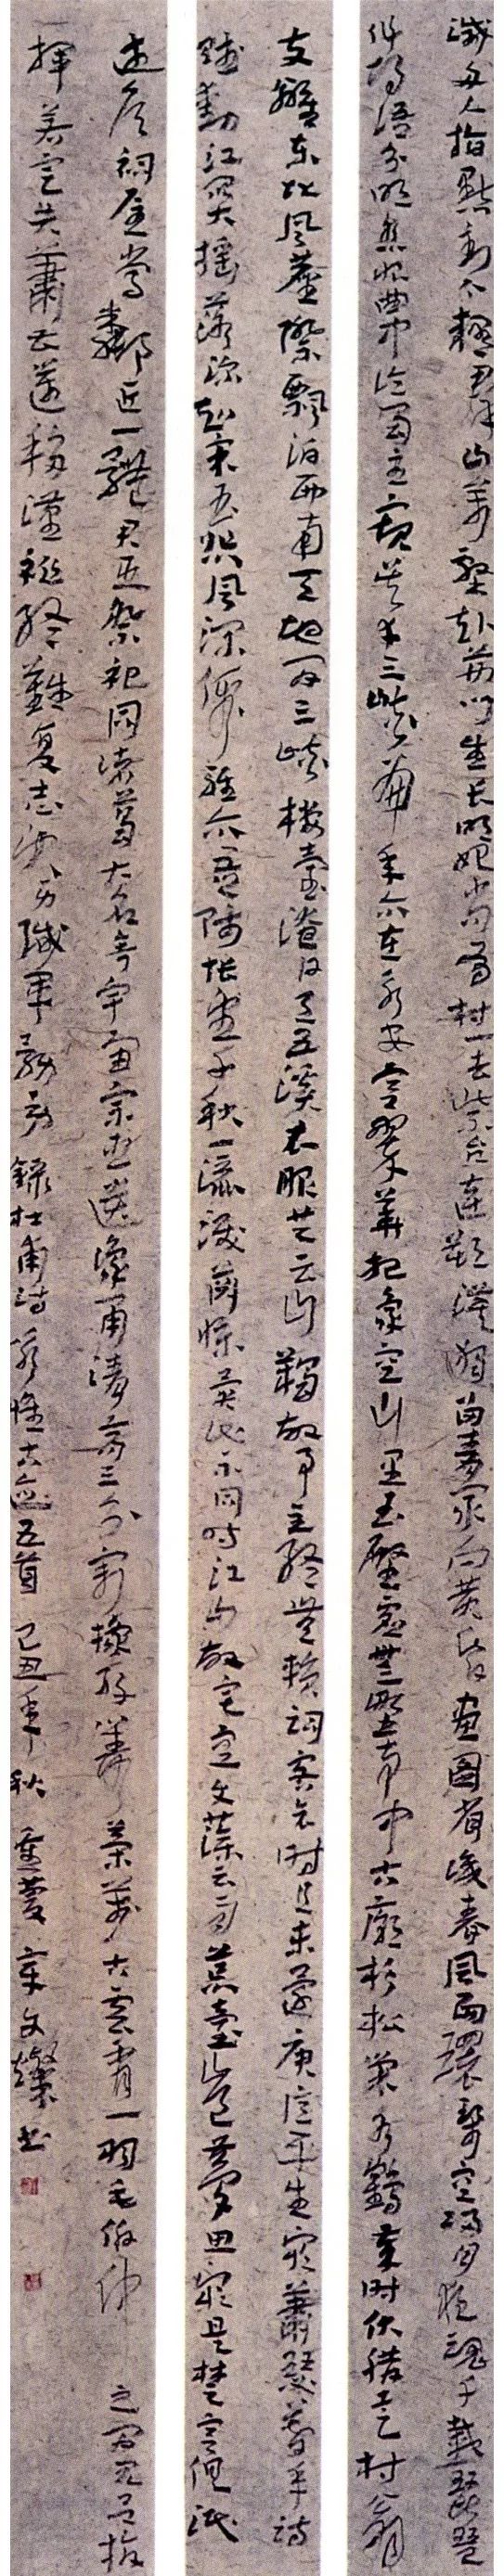 滅舟人指點到今疑群山萬壑赴荊門生長明妃尚有村一去紫台連朔漠獨留青冢向黃昏畫圖省識春風面環珮空歸月夜魂千載琵琶
作胡語分明怨恨曲中論蜀主窺吳幸三峽崩年亦在永安宮翠華想象空山里玉殿虛無野寺中古廟杉松巢水鶴歲時伏臘走村翁
支離東北風塵際飄泊西南天地間三峽樓臺淹日月五溪衣服共云山羯胡事主終無賴詞客哀時且未還庾信平生最蕭瑟暮年詩
賦動江關搖落深知宋玉悲風流儒雅亦吾師悵望千秋一灑淚蕭條異代不同時江山故宅空文藻云雨荒臺豈夢思最是楚宮俱泯
武侯祠屋常鄰近一體君臣祭祀同諸葛大名垂宇宙宗臣遺像肅清高三分割據紆籌策萬古云霄一羽毛伯仲之間見伊呂指
揮若定失蕭曹運移漢祚終難復志決身殲軍務勞 錄杜甫詩詠懷古跡五首 己丑年秋 重慶宋文燦書